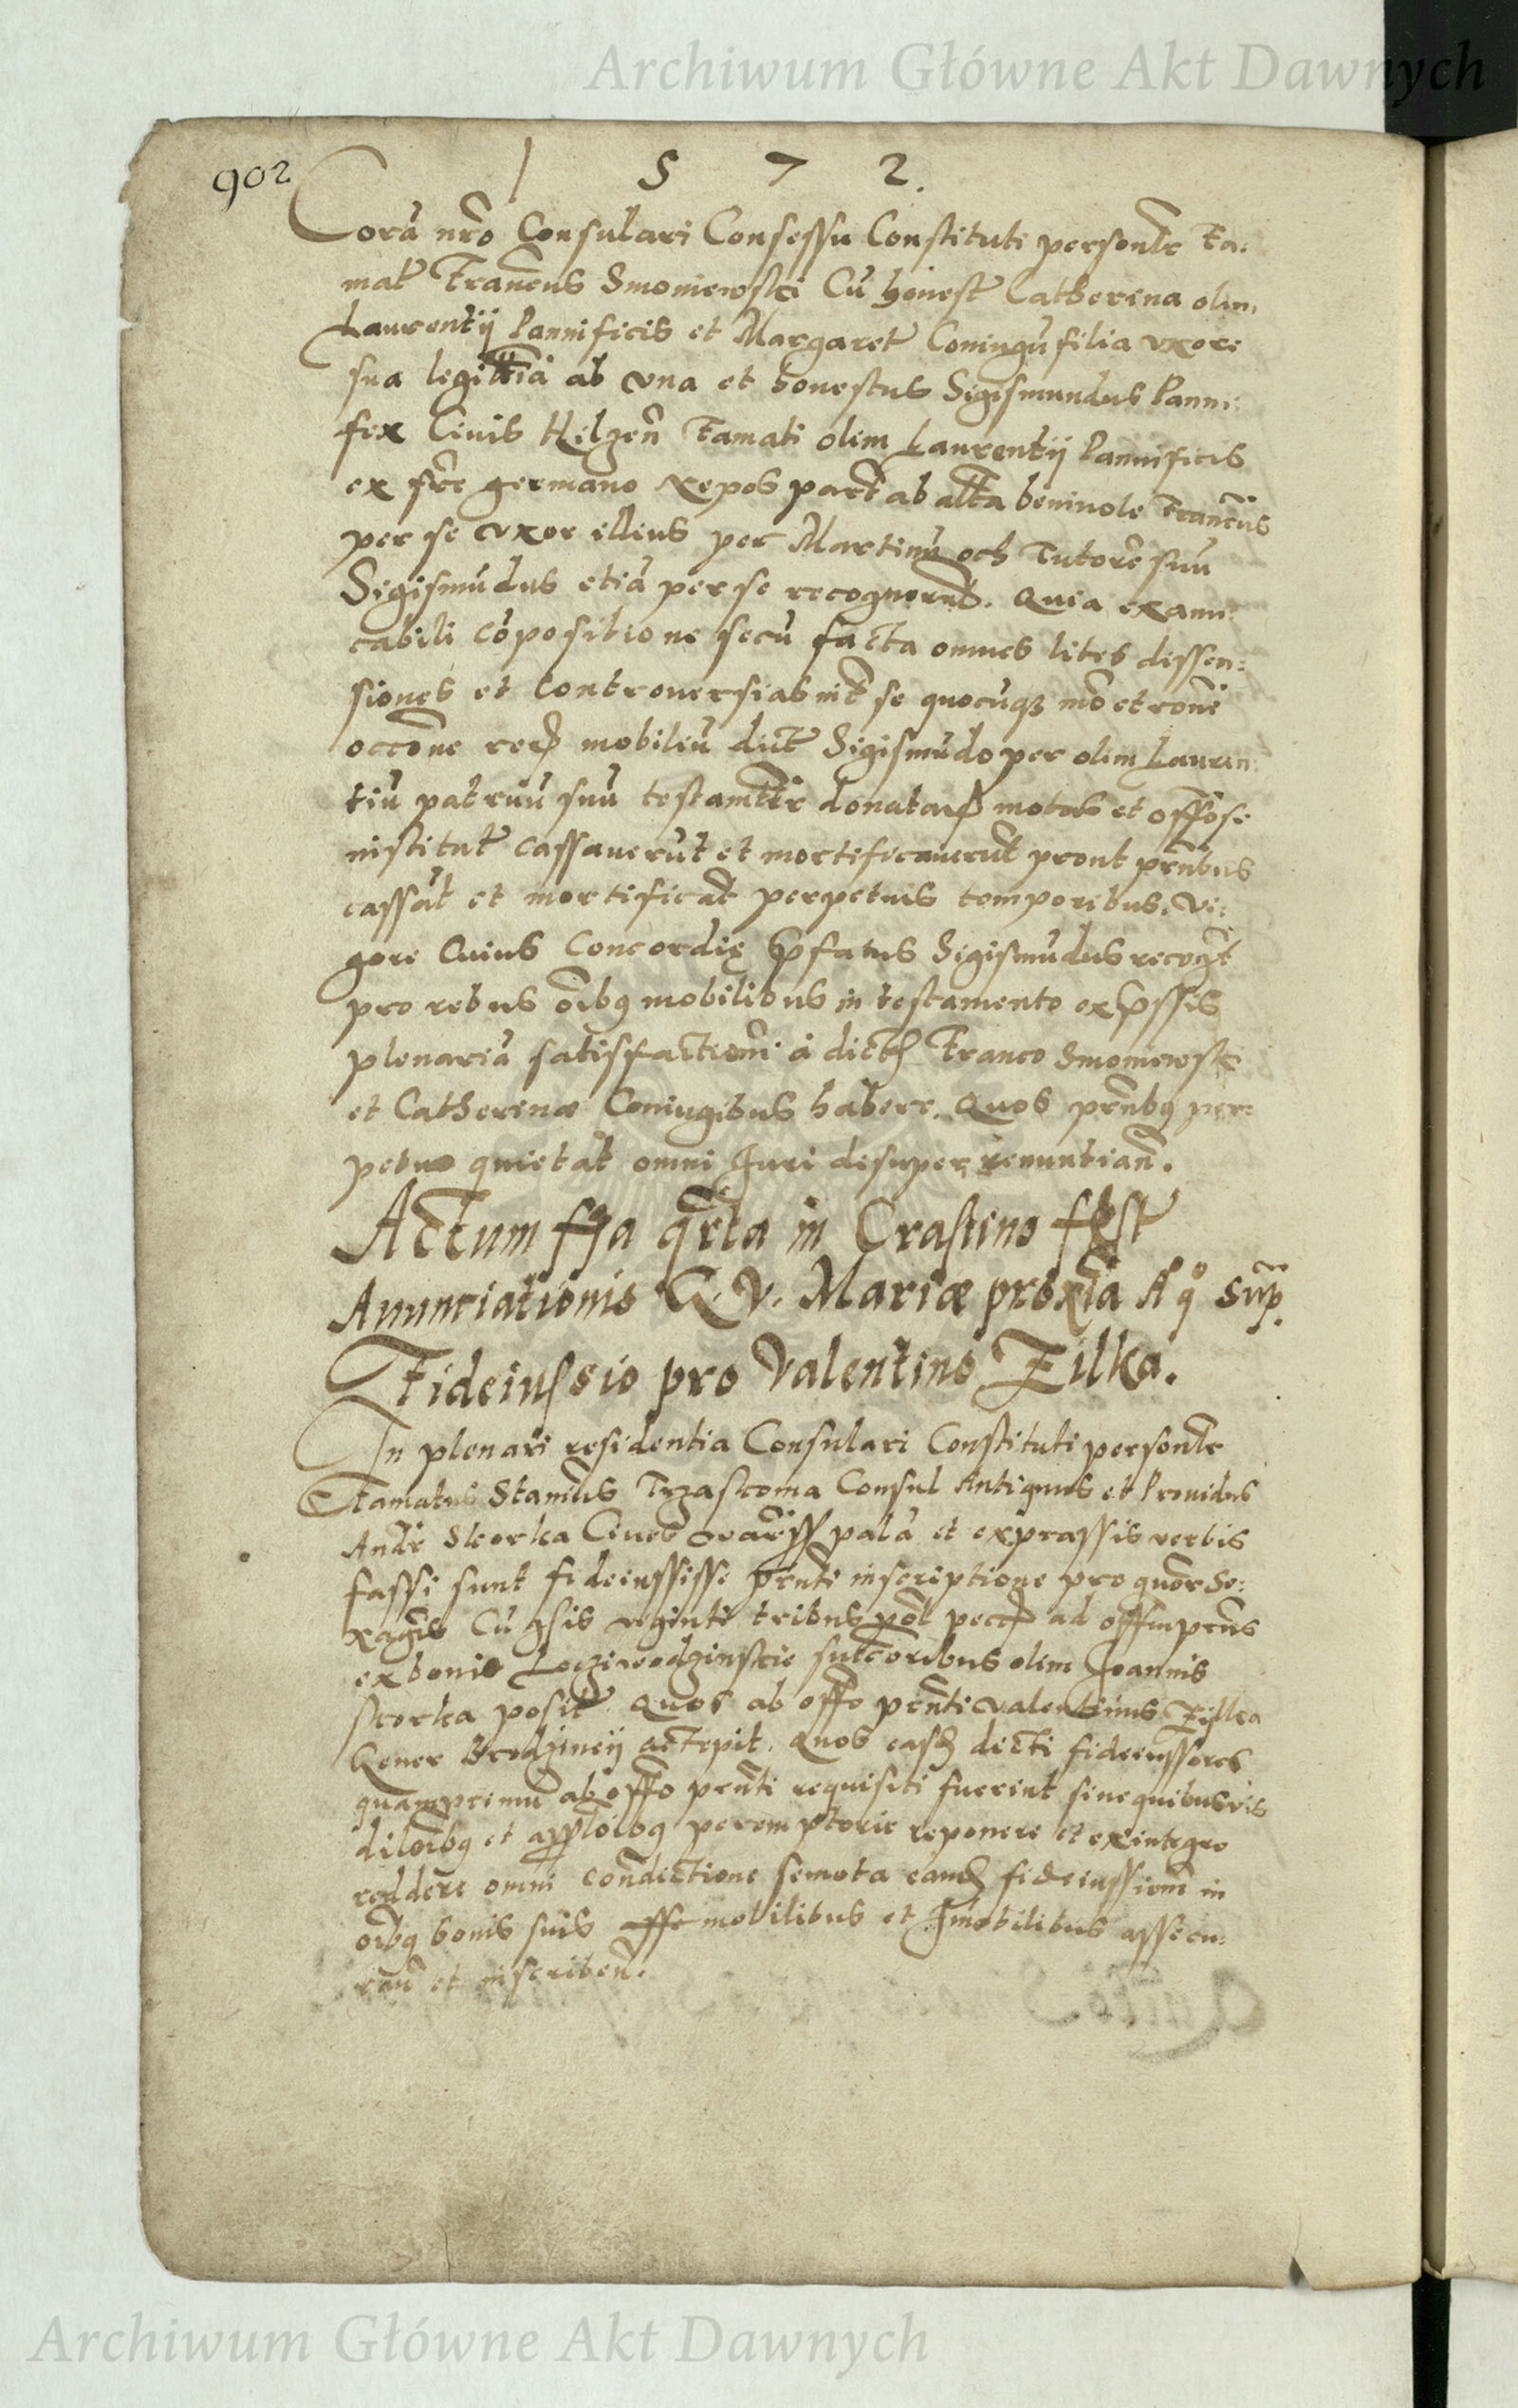 Archiwum Główne Akt Dawnych
902
1 5 7 2.
Corā nrō Consulari Consessu Constituti personlr Fa:
mat Francus Smoniewski Cū honest Catherina olim
Laurentij Pannificis et Margaret Coniugū filia vxore
sua legittīa ab vna et honestus Sigismundus Panni:
fex Civis Kilzen̄ Famati olim Laurentij Pannificis
ex fre germano Nepos part ab altā benivole Francus
per se vxor illius per Martinū och Tutorē suū
Sigismūdus etiā per se recognorūt. Quia ex ami:
cabili cōpositione secū facta omnes lites dissen:
siones et Controversias int se quocūq mō et rōne
occōne rerū mobiliū dict Sigismūdo per olim Lauren:
tiū patruū suū testamtlr donatarū motas et offōse
institut cassaverūt et mortificaverūt prout prntibus
cassāt et mortificāt perpetuis temporibus. Vi:
gore Cuius Concordię pfatus Sigismūdus recogt
pro rebus oībq mobilibus in testamento expssis
plenariā satisfactionē à dictis Franco Smoniewski
et Catherinæ Coniugibus habere. Quos prntbq per:
petuo quietāt omni Juri desuper renuntian̄.
Actum fria qrta in Crastino fest
Anunciationis G. V. Mariæ proxīa Aº qº sup.
Fideiussio pro Valentino Zilka.
In plenari residentia Consulari Constituti personlr
Famatus Stanius Trzascoma Consul Antiquus et Providus
Andr Skorka Cives palā et expræssis verbis
fassi sunt fideiussisse prnti inscriptione pro quor Se:
xagis Cū gsis viginti tribus pol pecū ad offm prns
ex bonis sutoribus olim Joannis
skorka posit. Quos ab offo prnti Valentinus Zilka
Gener actepit. Quos easd dicti fideiussores
quamprimū ab offo prnti requisiti fuerint sine quibusvis
dilōibq et peremptorie reponere et ex integro
reddere omni condictione semota eand fideiussionē in
oībq bonis suis mobilibus et Jmobilibus assecu:
ran̄ et inscriben̄.
Archiwum Główne Akt Dawnych